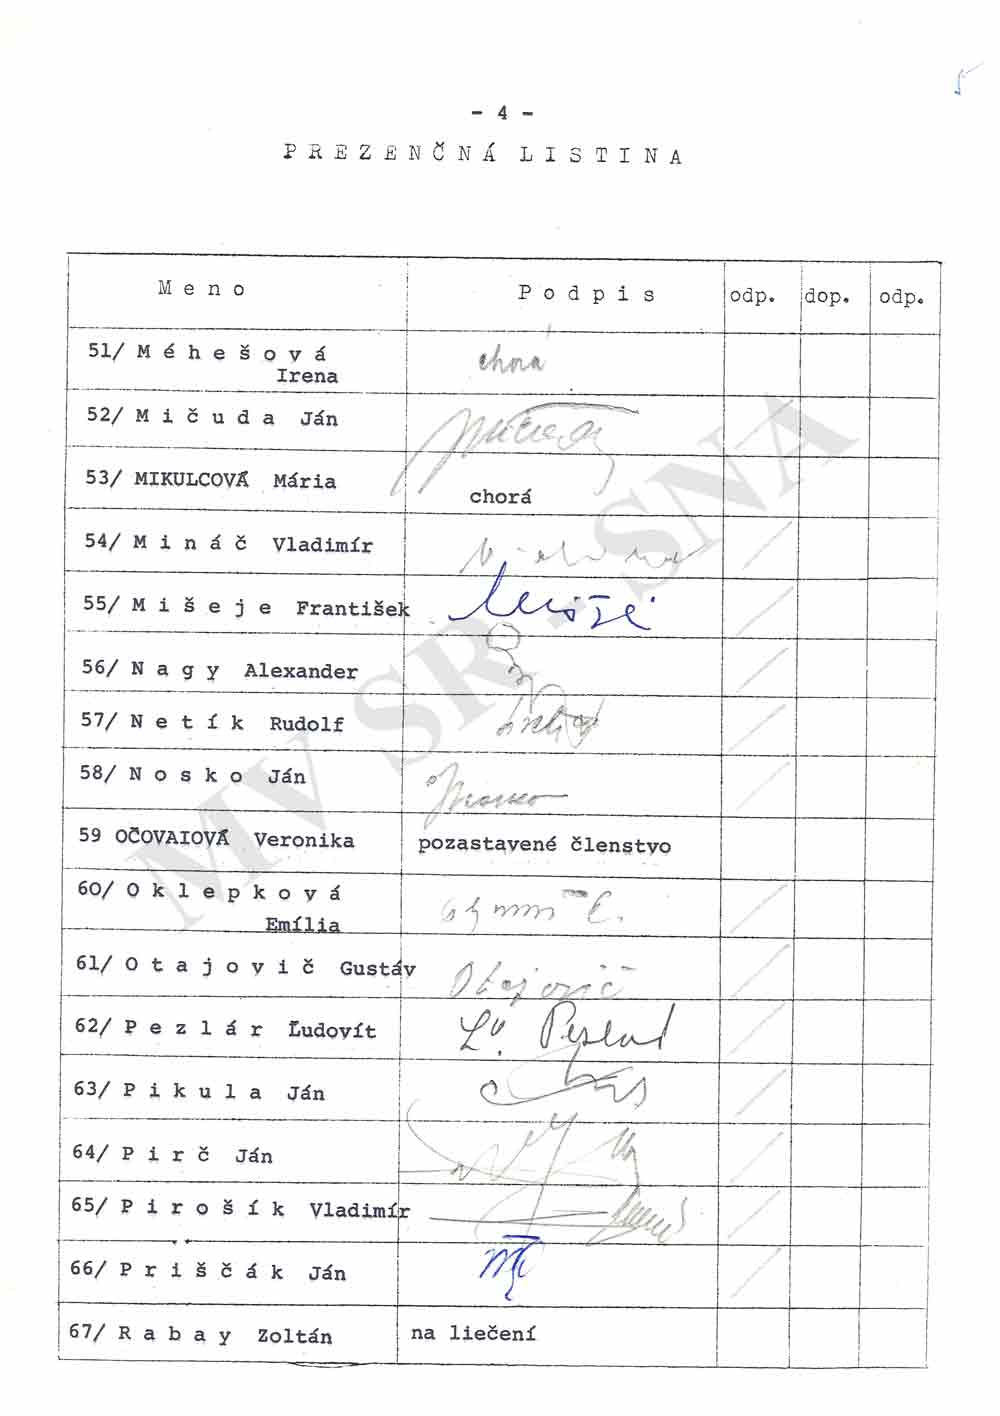 5
- 4 -
P R E Z E N Č N Á  L I S T I N A
M e n o  P o d p i s  odp.  dop.  odp.
51/ M é h e š o v á  chorá
Irena
52/ M i č u d a  Ján
53/ MIKULCOVÁ  Mária  chorá
54/ M i n á č  Vladimír
55/ M i š e j e  František
56/ N a g y  Alexander
57/ N e t í k  Rudolf
58/ N o s k o  Ján
59 OČOVAIOVÁ  Veronika  pozastavené členstvo
60/ O k l e p k o v á
Emília
61/ O t a j o v i č  Gustáv  Otajovič
62/ P e z l á r  Ľudovít  Ľ. Pezlár
63/ P i k u l a  Ján
64/ P i r č  Ján
65/ P i r o š í k  Vladimír
66/ P r i š č á k  Ján
67/ R a b a y  Zoltán  na liečení
MV SR - SNA